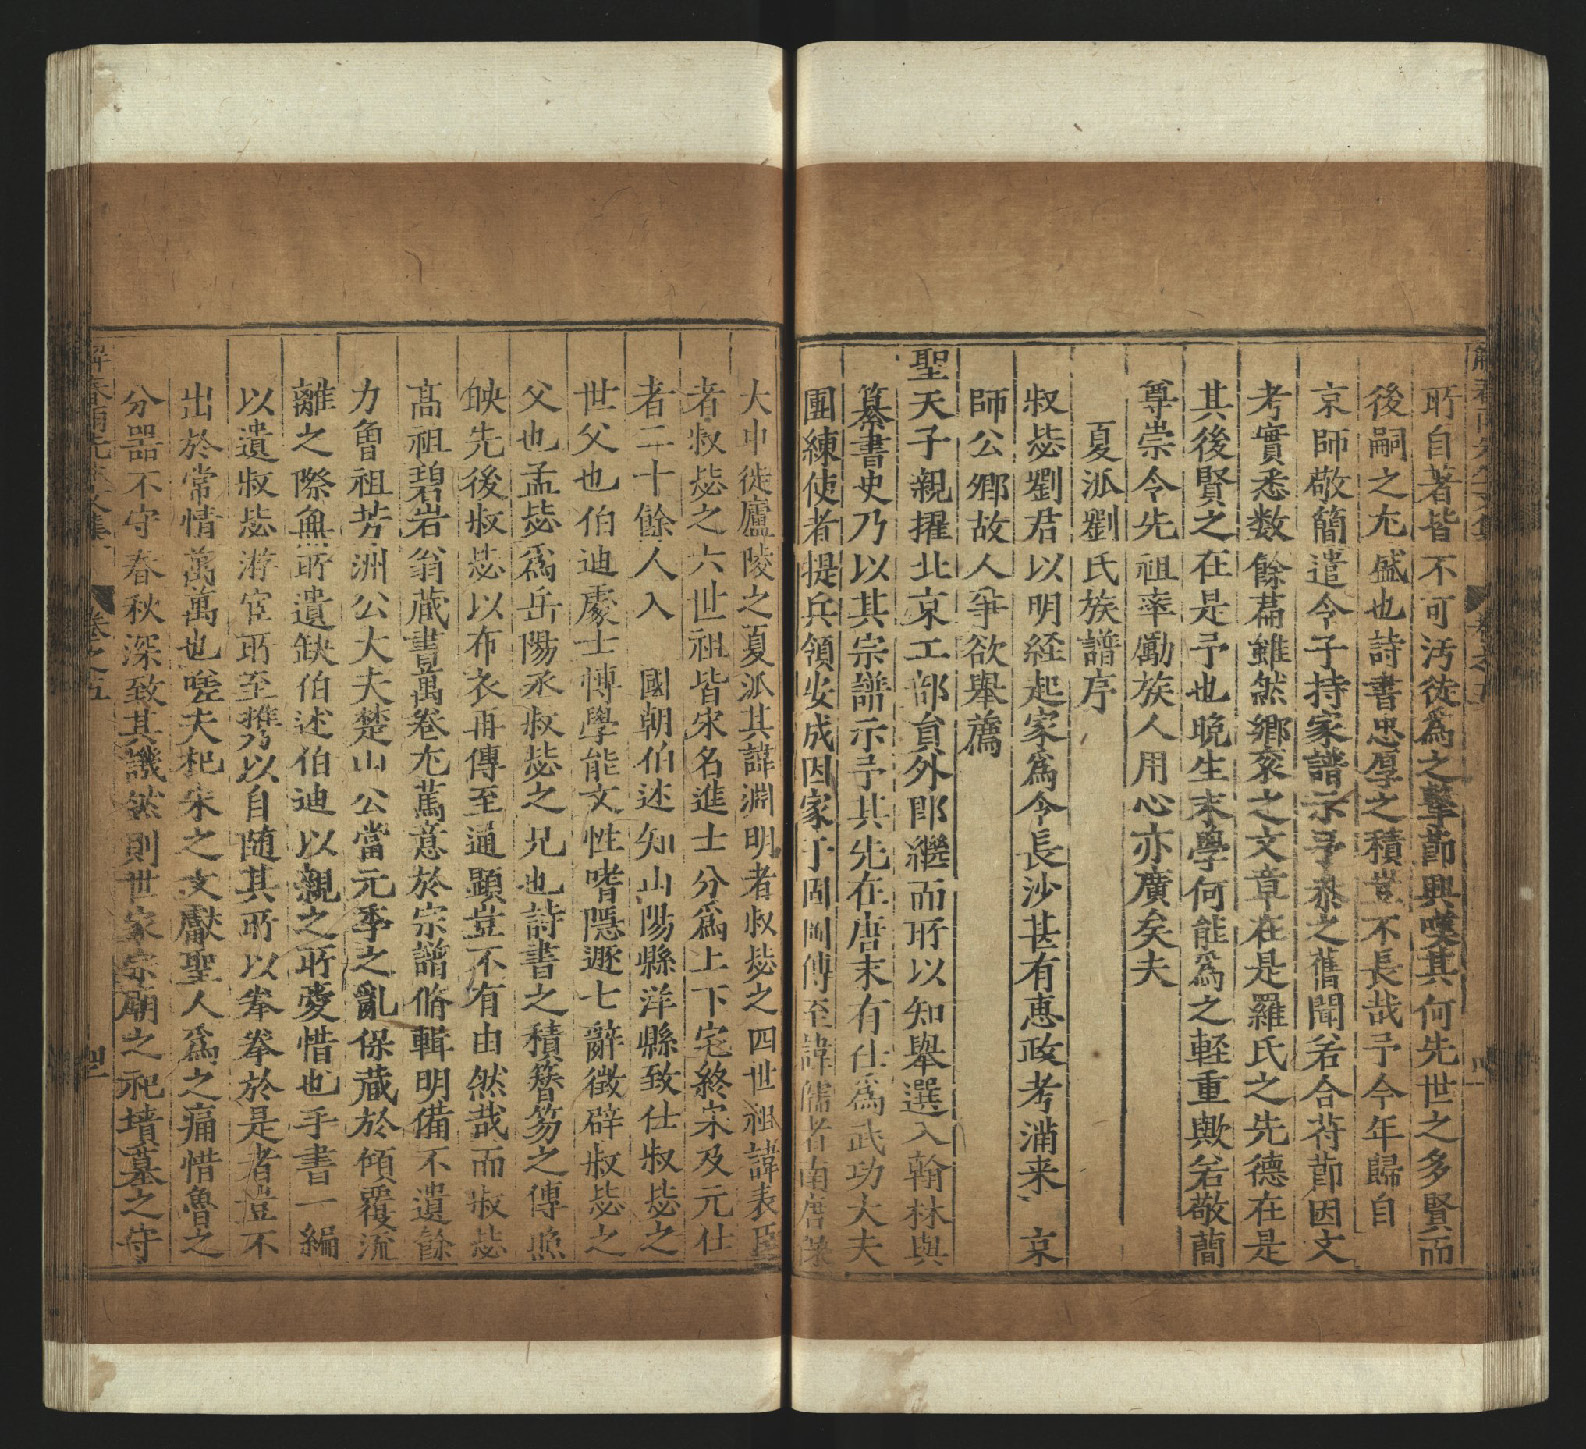 所自著皆不可汚徒為之擊節興嘆其何先世之多賢而
後嗣之尤盛也詩書忠厚之積豈不長哉予今年歸自
京師敬簡遣令子持家譜示予泰之舊聞若合符節因文
考實悉数餘篇雖然鄉袞之文章在是羅氏之先德在是
其後賢之在是予也晩生末學何能為之軽重歟若敬簡
尊崇令先祖率勵族人用心亦廣矣夫
夏派劉氏族譜序
叔毖劉君以明経起家為今長沙甚有惠政考滿来京
師公卿故人争欲舉薦
聖天子親擢北京工部員外郎繼而所以知舉選入翰林與
纂書史乃以其宗譜示予其先在唐末有仕為武功大夫
團練使者提兵領安成因家于圖岡傳至諱儒者南唐
大中徙廬陵之夏派其諱淵明者叔毖之四世祖諱表臣
者叔毖之六世祖皆宋名進士分為上下宅終宋及元仕
者二十餘人入　國朝伯述知山陽縣洋縣致仕叔毖之
世父也伯迪處士博學能文性嗜隠遯七辭徵辟叔毖之
父也孟毖為岳陽丞叔毖之兄也詩書之積簪笏之傳焦
映先後叔毖以布衣再傳至通顯豈不有由然哉而叔毖
髙祖碧岩翁藏書萬卷尤萬意於宗譜脩輯明備不遺餘
力魯祖芳洲公大夫楚山公當元季之亂保藏於傾覆流
離之際無所遺缺伯述伯迪以親之所愛惜也手書一編
以遺叔毖游宦所至携以自随其所以拳拳於是者豈不
出於常情萬萬也嗟夫杞宋之文獻聖人為之痛惜魯之
分器不守春秋深致其譏然則世家宗廟之祀墳墓之守
解春雨先生文集
卷之五